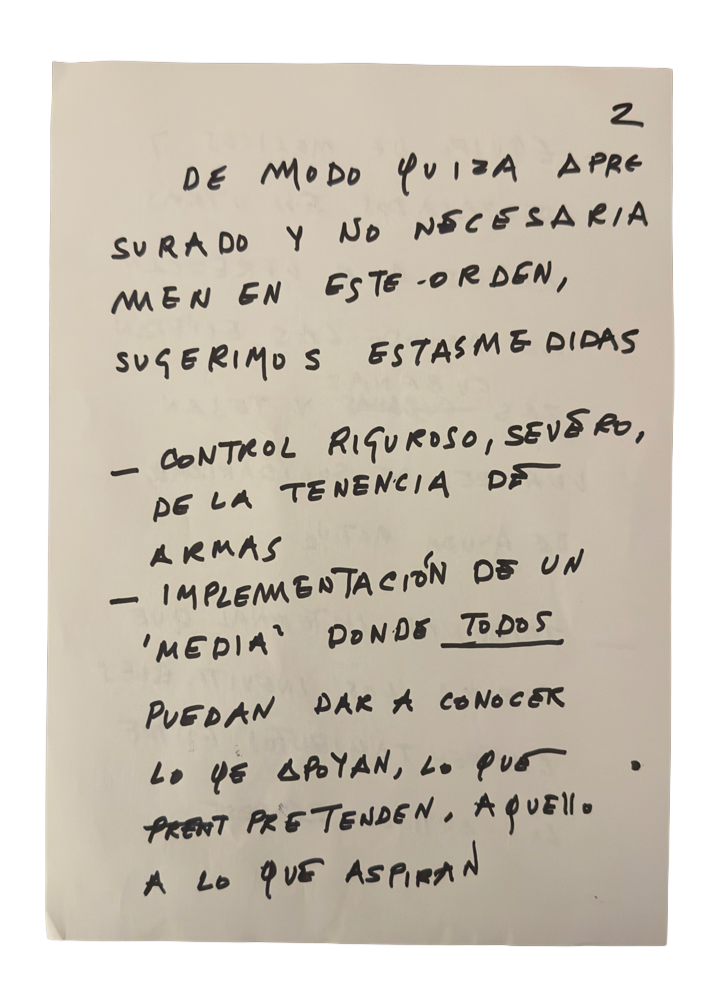 2
DE MODO QUIZA APRE
SURADO Y NO NECESARIA
MEN EN ESTE-ORDEN,
SUGERIMOS ESTASMEDIDAS
— CONTROL RIGUROSO, SEVERO,
DE LA TENENCIA DE
ARMAS
— IMPLEMENTACIÓN DE UN
'MEDIA' DONDE TODOS
PUEDAN DAR A CONOCER
LO QE APOYAN, LO QUE
PRENT PRETENDEN, AQUELLO
A LO QUE ASPIRAN